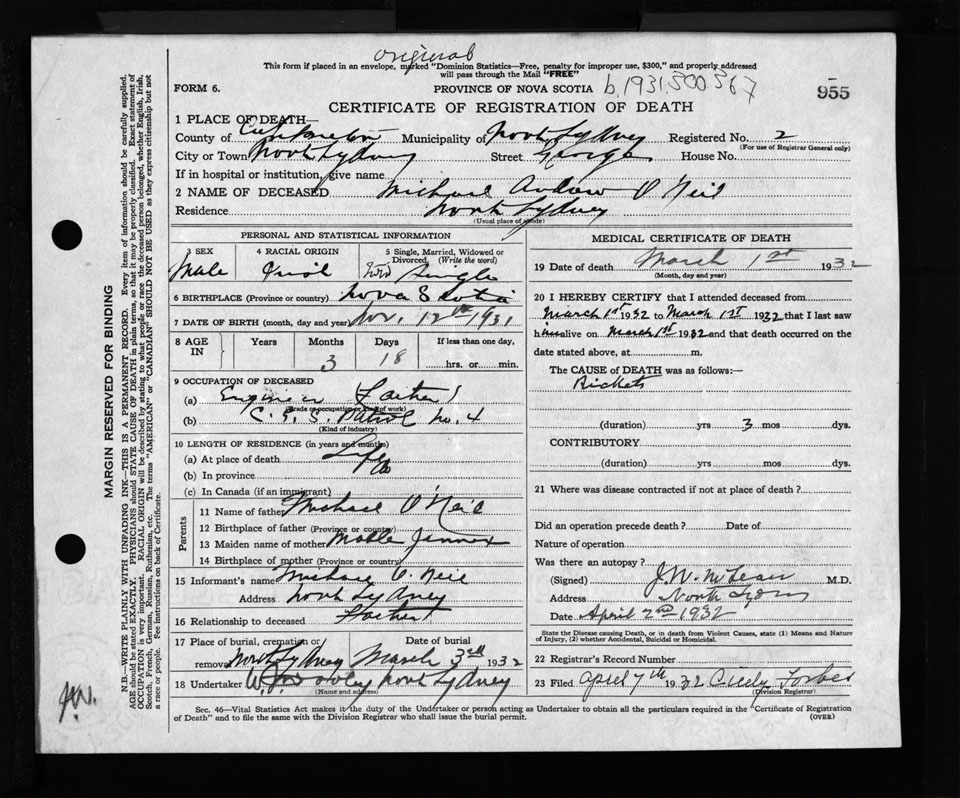 original
This form if placed in an envelope, marked "Dominion Statistics—Free, penalty for improper use, $300," and properly addressed
will pass through the Mail "FREE"
FORM 6.
PROVINCE OF NOVA SCOTIA
b.1931.300367
955
CERTIFICATE OF REGISTRATION OF DEATH
1 PLACE OF DEATH—
County of Cape Breton Municipality of North Sydney Registered No. 2
(For use of Registrar General only)
City or Town North Sydney Street George House No.
If in hospital or institution, give name
2 NAME OF DECEASED Michael Andrew O'Neil
Residence North Sydney
(Usual place of abode)
PERSONAL AND STATISTICAL INFORMATION
3 SEX 4 RACIAL ORIGIN 5 Single, Married, Widowed or Divorced, (Write the word)
Male Irish Single
6 BIRTHPLACE (Province or country) Nova Scotia
7 DATE OF BIRTH (month, day and year) Nov. 12th 1931
8 AGE IN Years Months Days If less than one day,
3 18 hrs. or min.
9 OCCUPATION OF DECEASED
(a) Engineer (Father)
(Trade or occupation or kind of work)
(b) C. G. S. Patrol No. 4
(Kind of industry)
10 LENGTH OF RESIDENCE (in years and months)
(a) At place of death Life
(b) In province
(c) In Canada (if an immigrant)
Parents
11 Name of father Michael O'Neil
12 Birthplace of father (Province or country)
13 Maiden name of mother Mable
14 Birthplace of mother (Province or country)
15 Informant's name Michael O'Neil
Address North Sydney
16 Relationship to deceased Father
17 Place of burial, cremation or removal North Sydney Date of burial March 3rd 1932
18 Undertaker North Sydney
(Name and address)
MEDICAL CERTIFICATE OF DEATH
19 Date of death March 1st 1932
(Month, day and year)
20 I HEREBY CERTIFY that I attended deceased from
March 1st 1932 to March 1st 1932 that I last saw
him alive on March 1st 1932 and that death occurred on the
date stated above, at m.
The CAUSE of DEATH was as follows:
Rickets
(duration) yrs 3 mos dys.
CONTRIBUTORY
(duration) yrs mos dys.
21 Where was disease contracted if not at place of death?
Did an operation precede death? Date of
Nature of operation
Was there an autopsy?
(Signed) J. W. McLean M.D.
Address North Sydney
Date April 2nd 1932
State the Disease causing Death, or in death from Violent Causes, state (1) Means and Nature
of Injury, (2) whether Accidental, Suicidal or Homicidal.
22 Registrar's Record Number
23 Filed April 7th 1932 Cicely Forbes
(Division Registrar)
Sec. 46—Vital Statistics Act makes it the duty of the Undertaker or person acting as Undertaker to obtain all the particulars required in the "Certificate of Registration
of Death" and to file the same with the Division Registrar who shall issue the burial permit.
(OVER)
MARGIN RESERVED FOR BINDING
N.B.—WRITE PLAINLY WITH UNFADING INK—THIS IS A PERMANENT RECORD. Every item of information should be carefully supplied.
AGE should be stated EXACTLY. PHYSICIANS should STATE CAUSE OF DEATH in plain terms, so that it may be properly classified. Exact statement of
OCCUPATION is very important. RACIAL ORIGIN will be described by stating to what people or race the deceased person belonged, whether English, Irish,
Scotch, French, German, Russian, Ruthenian, etc. The terms "AMERICAN" or "CANADIAN" SHOULD NOT BE USED as they express citizenship but not
a race or people. See instructions on back of Certificate.